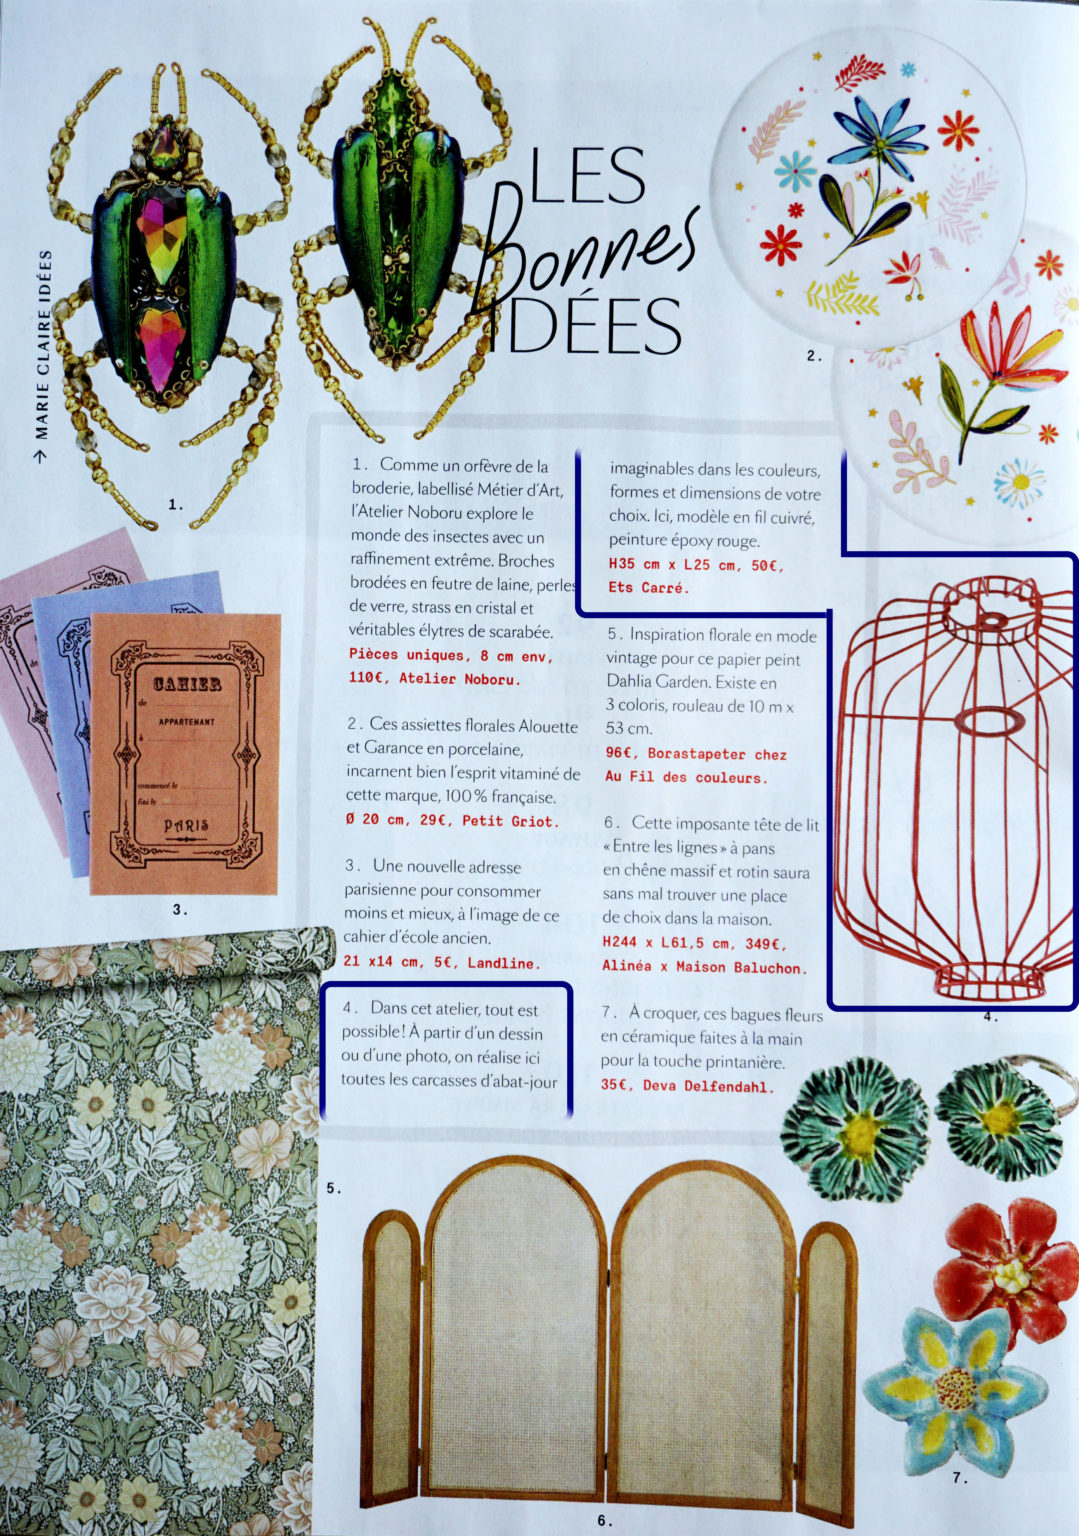 LES
Bonnes
IDÉES
→ MARIE CLAIRE IDÉES
1.
2.
CAHIER
de
APPARTENANT
à
commencé le
fini le
PARIS
de
3.
1. Comme un orfèvre de la
broderie, labellisé Métier d'Art,
l'Atelier Noboru explore le
monde des insectes avec un
raffinement extrême. Broches
brodées en feutre de laine, perles
de verre, strass en cristal et
véritables élytres de scarabée.
Pièces uniques, 8 cm env,
110€, Atelier Noboru.
2. Ces assiettes florales Alouette
et Garance en porcelaine,
incarnent bien l'esprit vitaminé de
cette marque, 100% française.
Ø 20 cm, 29€, Petit Griot.
3. Une nouvelle adresse
parisienne pour consommer
moins et mieux, à l'image de ce
cahier d'école ancien.
21 x14 cm, 5€, Landline.
4. Dans cet atelier, tout est
possible! À partir d'un dessin
ou d'une photo, on réalise ici
toutes les carcasses d'abat-jour
imaginables dans les couleurs,
formes et dimensions de votre
choix. Ici, modèle en fil cuivré,
peinture époxy rouge.
H35 cm x L25 cm, 50€,
Ets Carré.
5. Inspiration florale en mode
vintage pour ce papier peint
Dahlia Garden. Existe en
3 coloris, rouleau de 10 m x
53 cm.
96€, Borastapeter chez
Au Fil des couleurs.
6. Cette imposante tête de lit
«Entre les lignes» à pans
en chêne massif et rotin saura
sans mal trouver une place
de choix dans la maison.
H244 x L61,5 cm, 349€,
Alinéa x Maison Baluchon.
7. À croquer, ces bagues fleurs
en céramique faites à la main
pour la touche printanière.
35€, Deva Delfendahl.
4.
5.
6.
7.